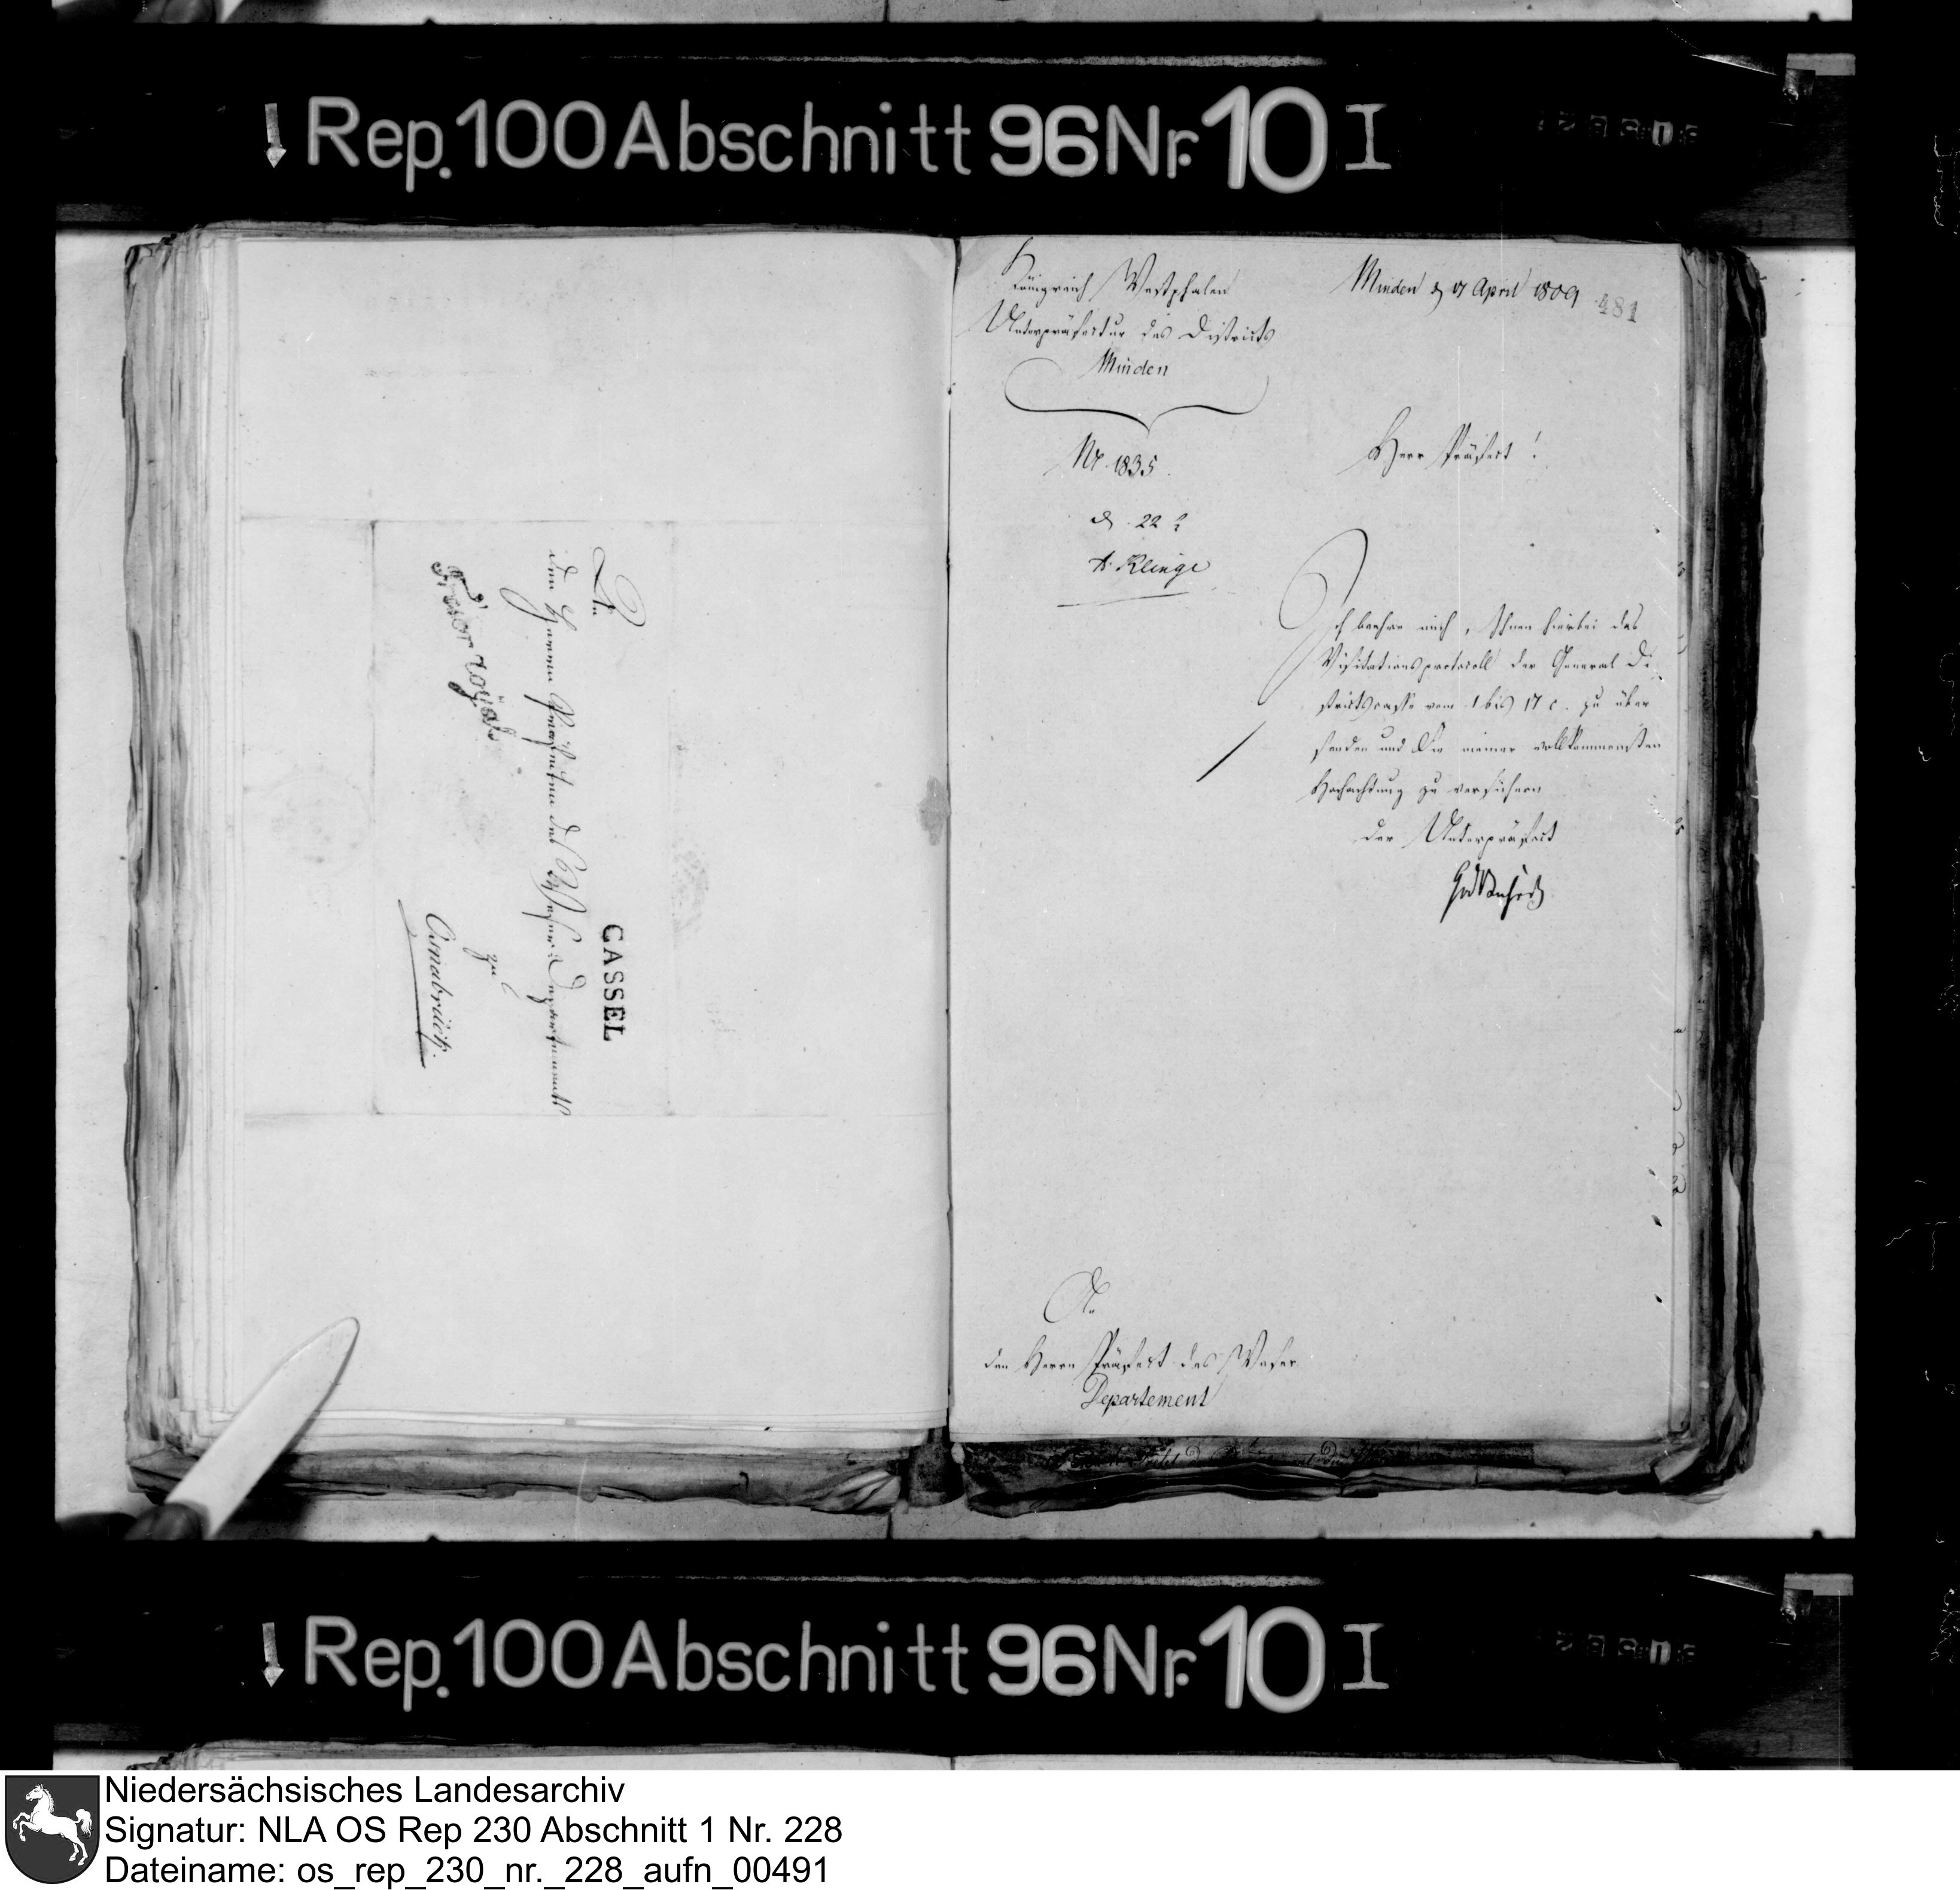 Rep. 100 Abschnitt 96 Nr. 10 I
An
den Herrn Praefecten des Weser-Departements
zu
Osnabrück.
CASSEL
Königreich Westphalen
Unterpräfectur des Districts
Minden
Nr. 1835.
Klinge
Minden d 17 April 1809
481
Herr Präfect!
Ich beehre mich, Ihnen hierbei das
Visitationsprotocoll der General Di
strictscasse vom 1 bis 17 c. zu über
senden und Sie meiner vollkommensten
Hochachtung zu versichern
Der Unterpräfect
An
den Herrn Präfect des Weser
Departement
Rep. 100 Abschnitt 96 Nr. 10 I
Niedersächsisches Landesarchiv
Signatur: NLA OS Rep 230 Abschnitt 1 Nr. 228
Dateiname: os_rep_230_nr._228_aufn_00491